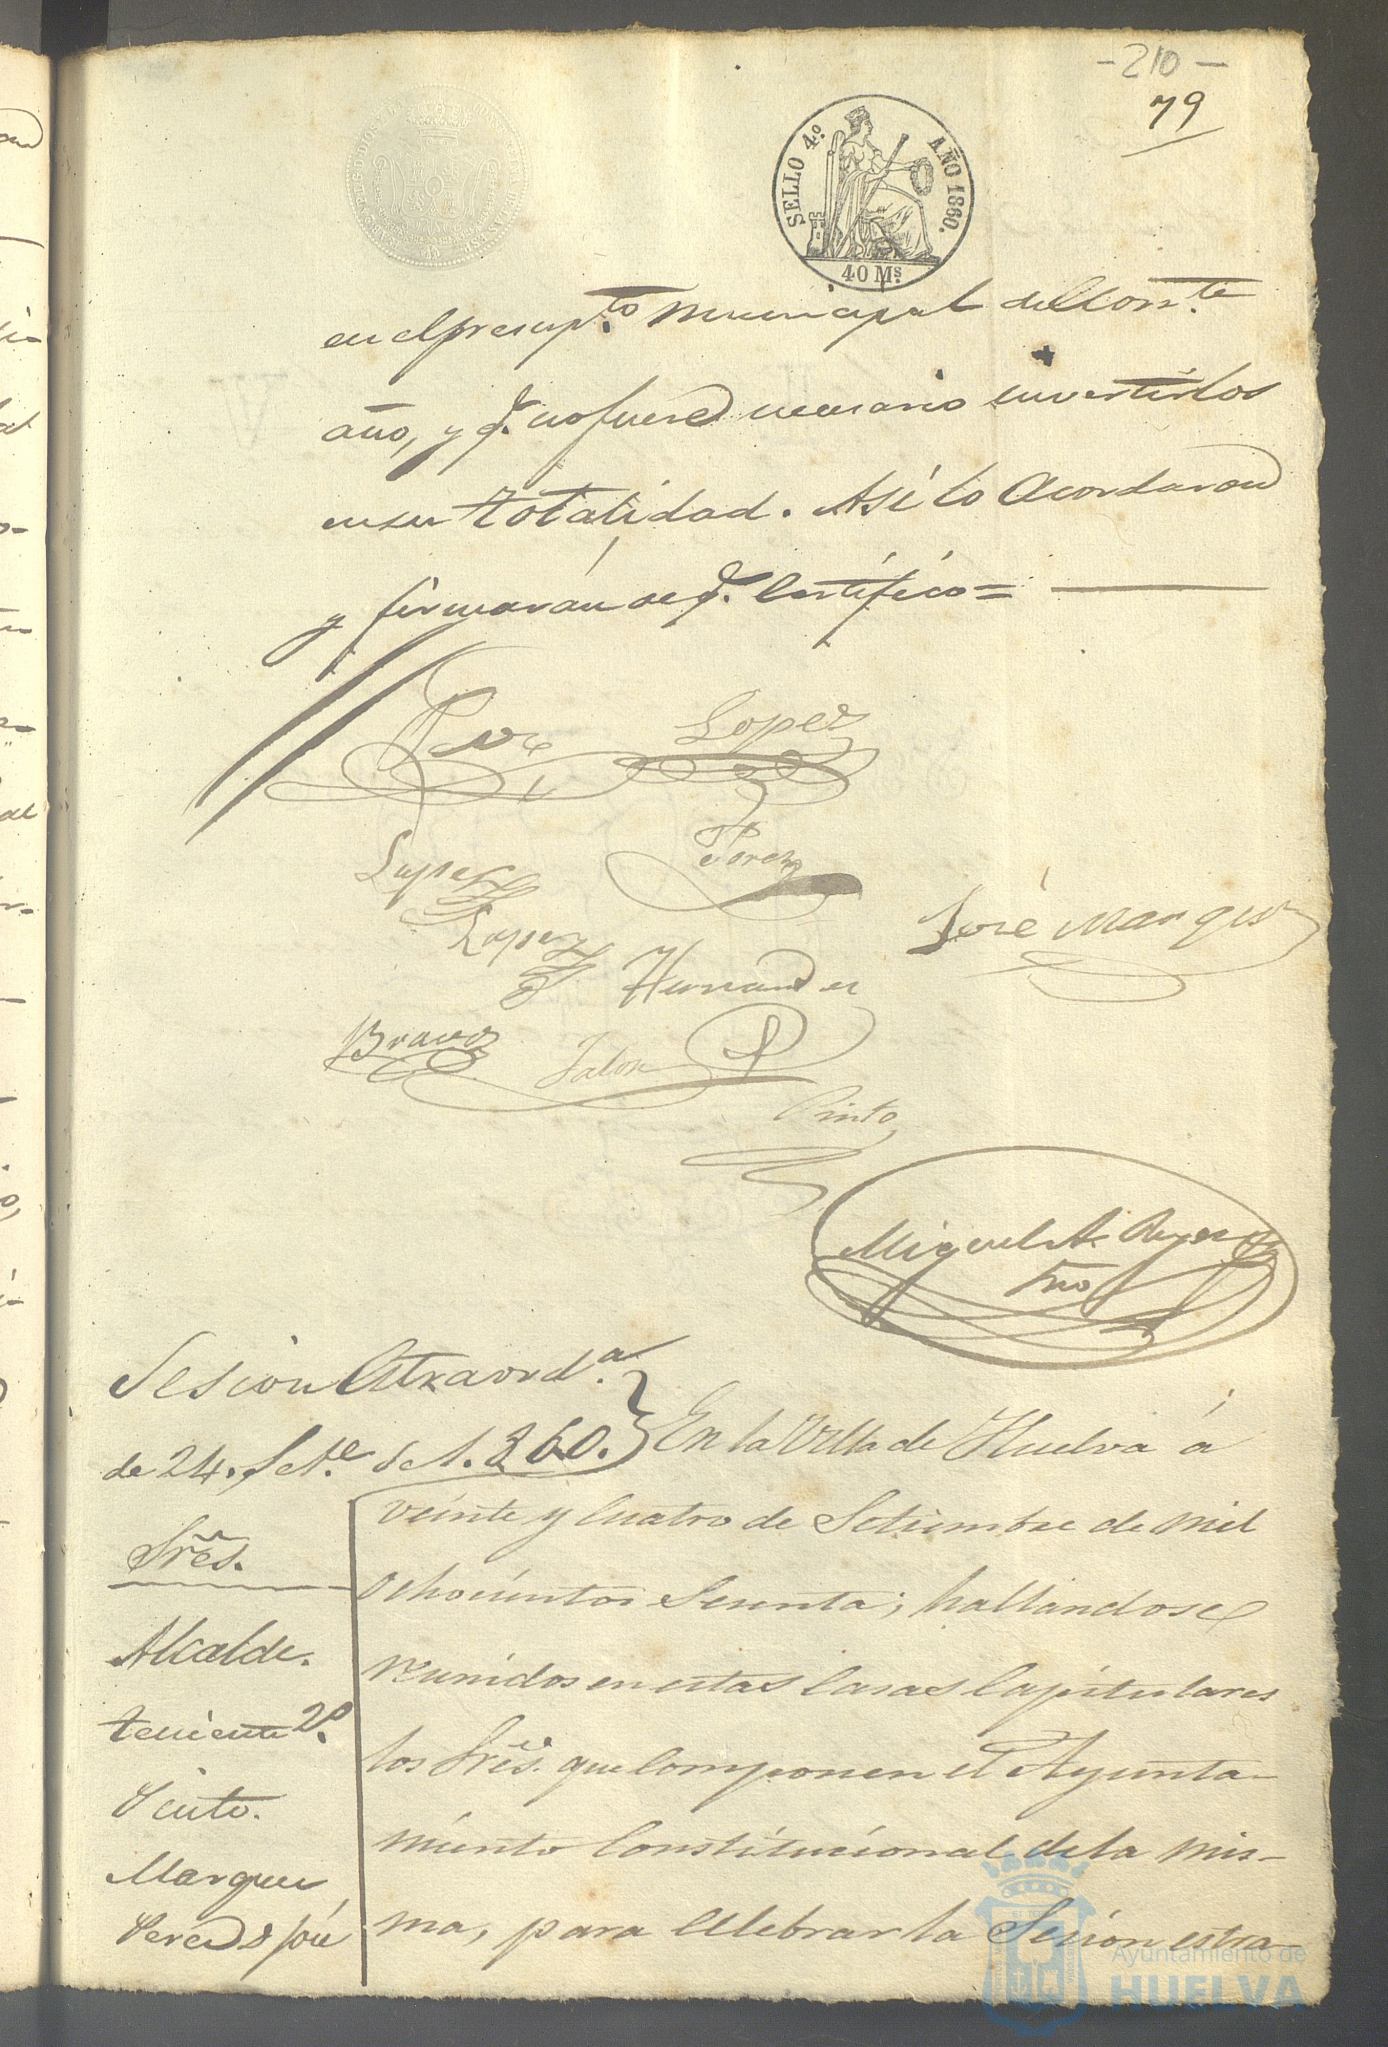 -210-
79
SELLO 4.º AÑO 1860.
40 Ms.
en el presup.to municipal del corr.te
año, y q.e no fuere necesario invertirlos
en su totalidad. Así lo acordaron
y firmarán de q.e certifico=
Lopez
Lopez
Perez
José Marquez
Lopez
Hernandez
Bravo
Jalon
Pinto
Miguel A. Reyes
Srio
Sesion Extraord.a
de 24. Set.e de 1.860.
En la Villa de Huelva á
veinte y cuatro de Setiembre de mil
ochocientos sesenta; hallandose
reunidos en estas Casas Capitulares
los Sres. que componen el Ayunta-
miento Constitucional de la mis-
ma, para celebrar la Sesion estra-
Sres.
Alcalde.
teniente 2º.
Pinto.
Marquez
Perez D José
Ayuntamiento de
HUELVA